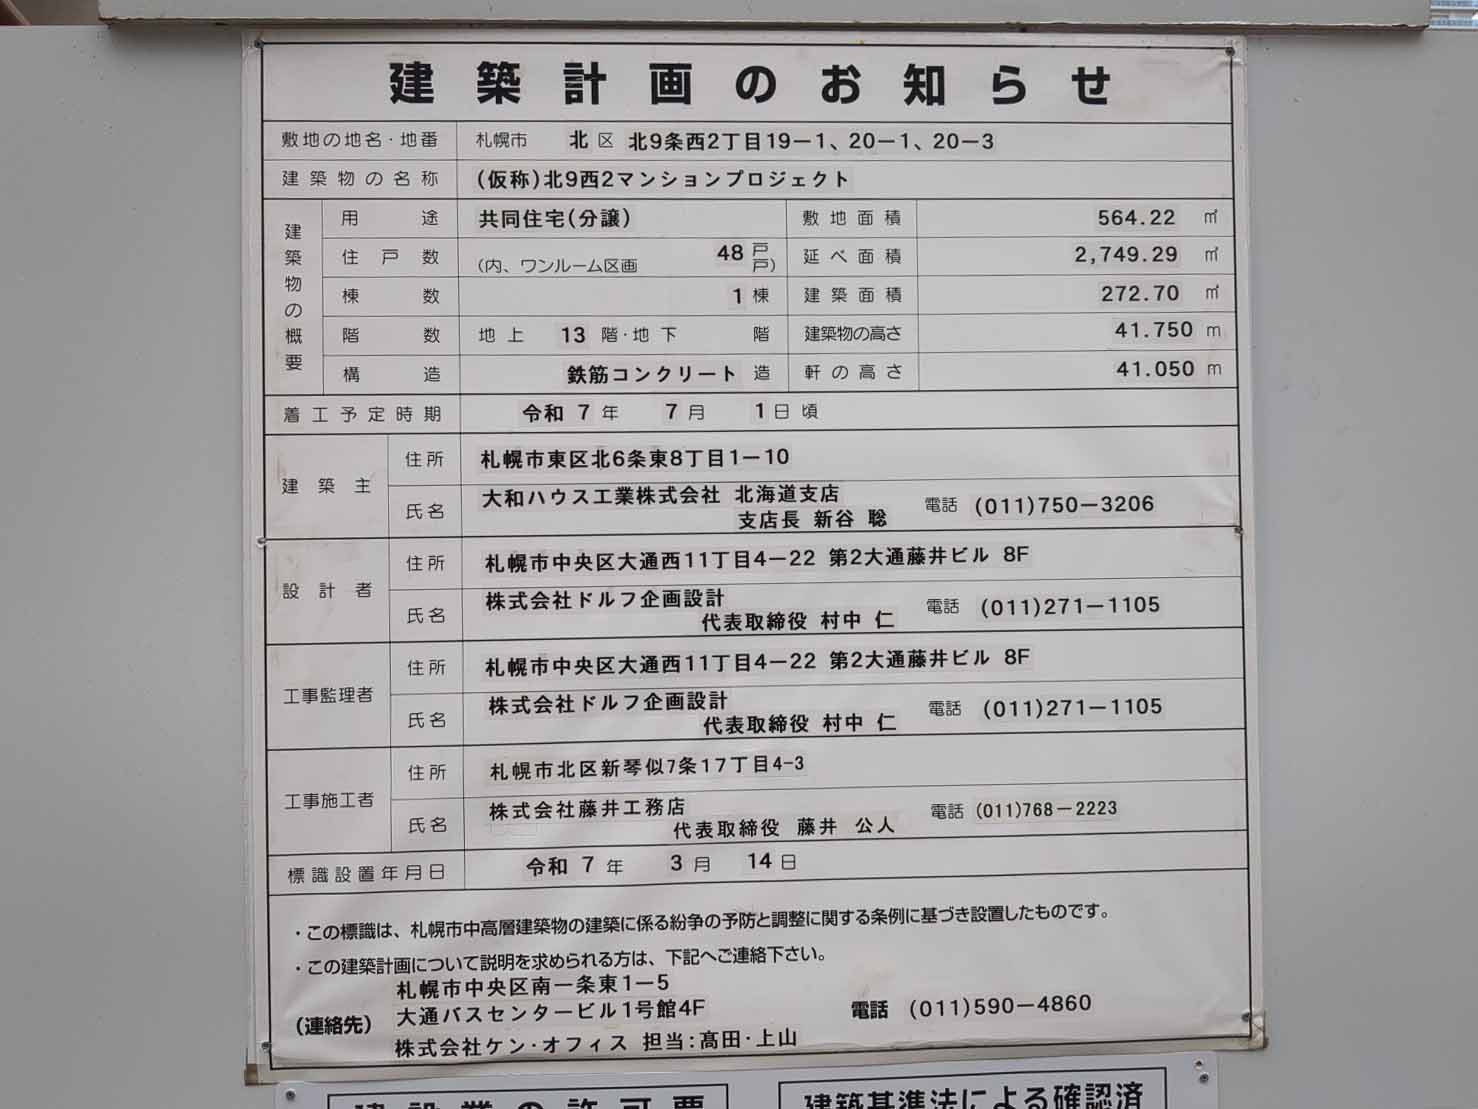 建築計画のお知らせ
敷地の地名・地番 札幌市 北区 北9条西2丁目19−1、20−1、20−3
建築物の名称 (仮称)北9西2マンションプロジェクト
建築物の概要
用途 共同住宅(分譲) 敷地面積 564.22 ㎡
住戸数 48戸 (内、ワンルーム区画 戸) 延べ面積 2,749.29 ㎡
棟数 1棟 建築面積 272.70 ㎡
階数 地上 13 階・地下 階 建築物の高さ 41.750 m
構造 鉄筋コンクリート 造 軒の高さ 41.050 m
着工予定時期 令和 7年 7月 1日頃
建築主 住所 札幌市東区北6条東8丁目1−10
氏名 大和ハウス工業株式会社 北海道支店
支店長 新谷 聡 電話 (011)750−3206
設計者 住所 札幌市中央区大通西11丁目4−22 第2大通藤井ビル 8F
氏名 株式会社ドルフ企画設計
代表取締役 村中 仁 電話 (011)271−1105
工事監理者 住所 札幌市中央区大通西11丁目4−22 第2大通藤井ビル 8F
氏名 株式会社ドルフ企画設計
代表取締役 村中 仁 電話 (011)271−1105
工事施工者 住所 札幌市北区新琴似7条17丁目4-3
氏名 株式会社藤井工務店
代表取締役 藤井 公人 電話 (011)768−2223
標識設置年月日 令和 7年 3月 14日
・この標識は、札幌市中高層建築物の建築に係る紛争の予防と調整に関する条例に基づき設置したものです。
・この建築計画について説明を求められる方は、下記へご連絡下さい。
札幌市中央区南一条東1−5
(連絡先) 大通バスセンタービル1号館4F 電話 (011)590−4860
株式会社ケン・オフィス 担当:髙田・上山
建設業の許可票
建築基準法による確認済